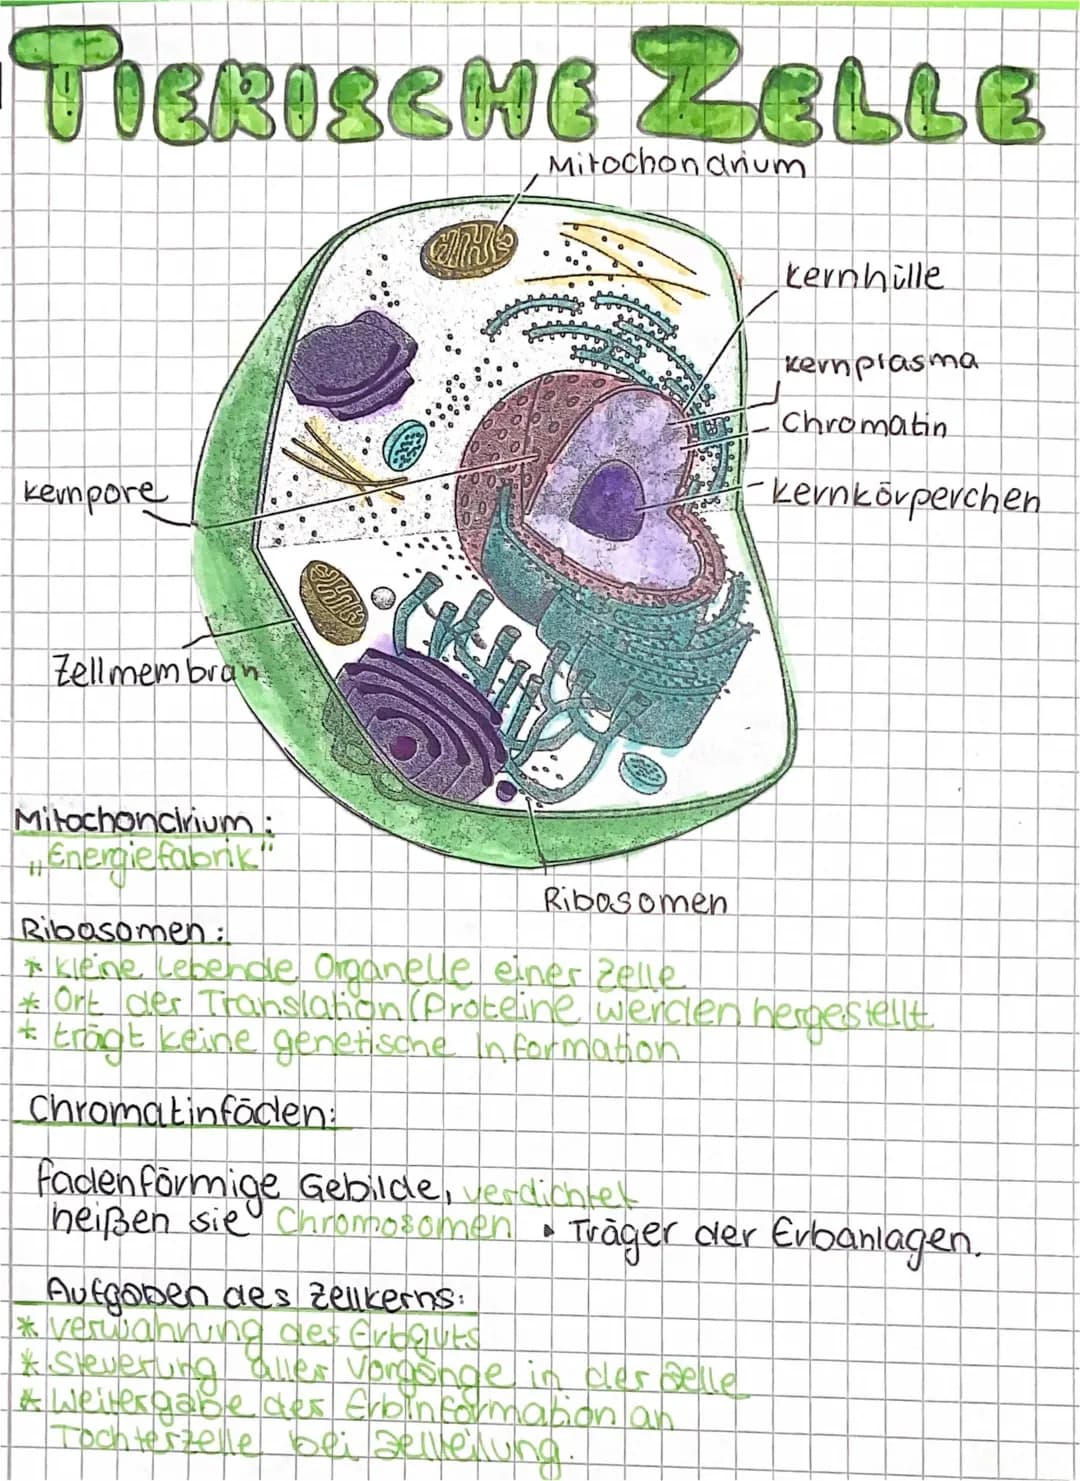 TIERISCHE ZELLE
Mitochondrium
Kernhülle
Kernplasma
Chromatin
Kernkörperchen
Kernpore
Zellmembran
Ribosomen
Mitochondrium:
„Energiefabrik"
Ribosomen:
* kleine Lebende Organelle einer Zelle
* Ort der Translation (Proteine werden hergestellt
* trägt keine genetische Information
Chromatinfäden:
fadenförmige Gebilde, verdichtet
heißen sie Chromosomen • Träger der Erbanlagen.
Aufgaben des Zellkerns:
* Verwahrung des Erbguts
* Steuerung aller Vorgänge in der Zelle
* Weitergabe der Erbinformation an
Tochterzelle bei Zellteilung.